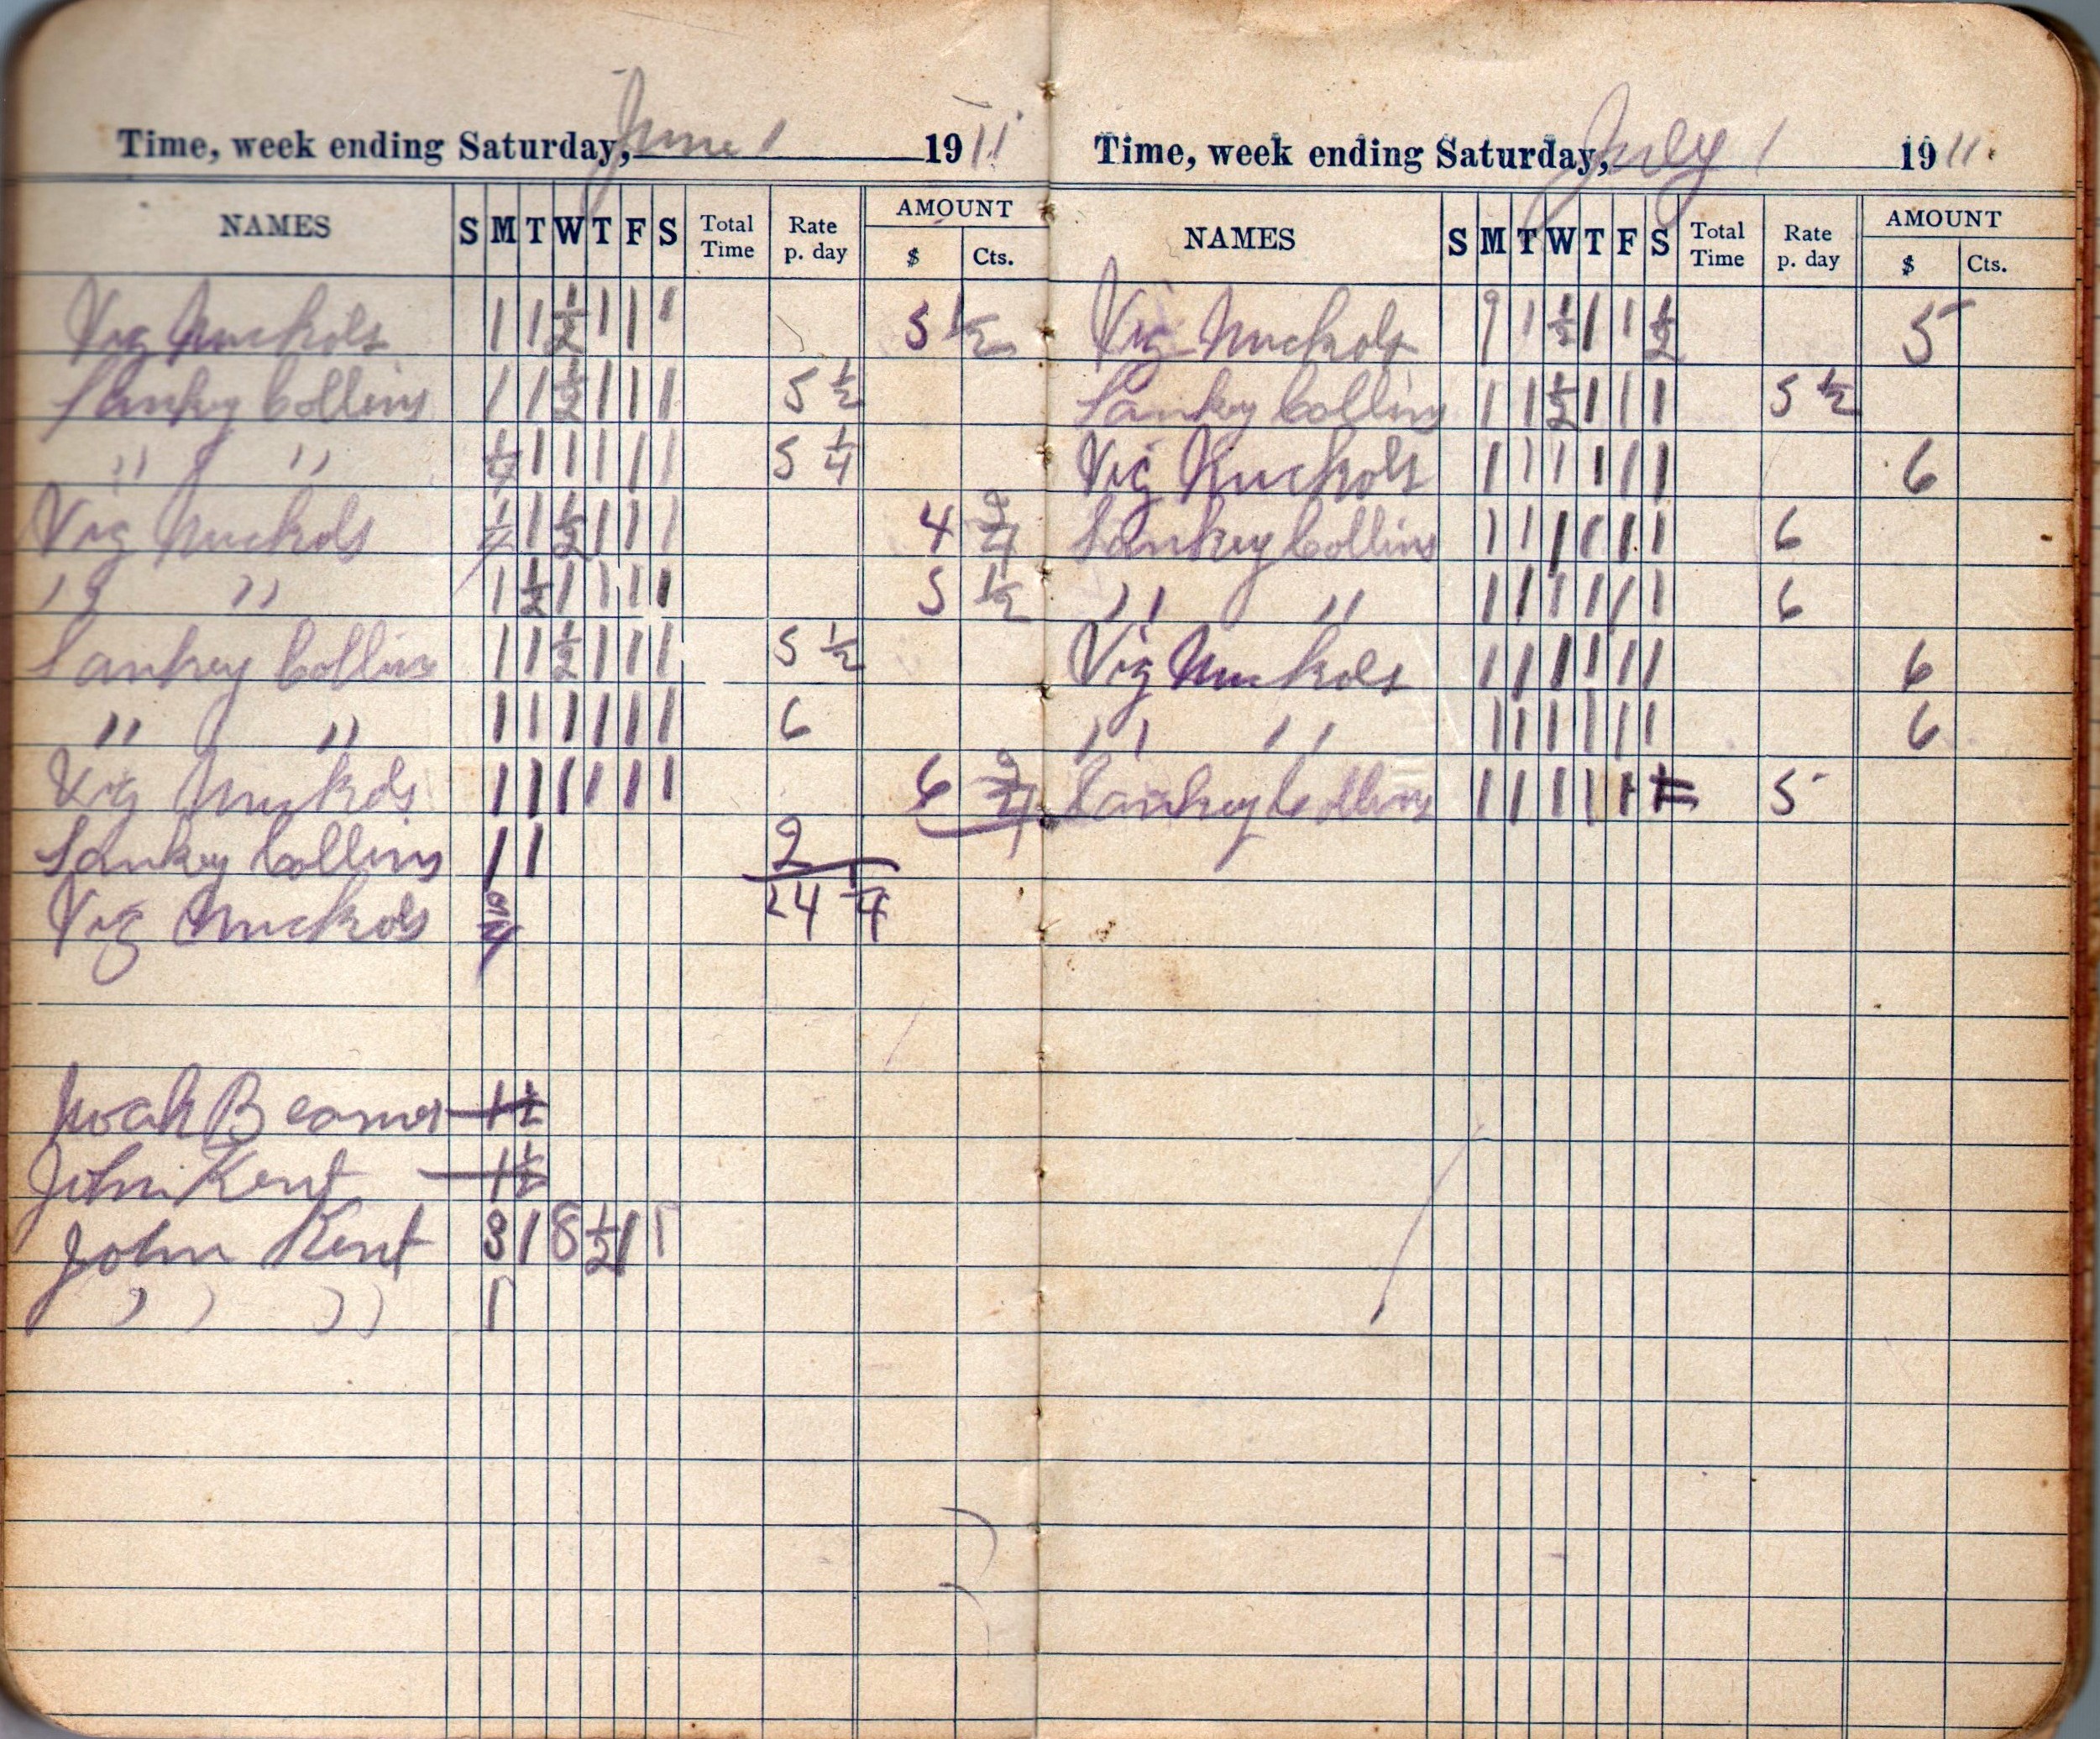 Time, week ending Saturday, June 1 1911
NAMES S M T W T F S Total Time Rate p. day AMOUNT $ Cts.
Vig Nuckols 1 1 ½ 1 1 1 5 ½
Sankey Collins 1 1 ½ 1 1 1 5 ½
" " ¼ 1 1 1 1 1 5 ¼
Vig Nuckols 1 ½ 1 1 1 4 ¾
" " 1 ½ 1 1 1 1 5 ½
Sankey Collins 1 1 ½ 1 1 1 5 ½
" " 1 1 1 1 1 1 6
Vig Nuckols 1 1 1 1 1 1 6 ¾
Sankey Collins 1 1 2
24 ¼
Vig Nuckols ¾
Noah Beamer 1 ½
John Kent 1 ½
John Kent 8 1 8 ½ 1 1
" " 1
Time, week ending Saturday, July 1 1911.
NAMES S M T W T F S Total Time Rate p. day AMOUNT $ Cts.
Vig Nuckols 9 1 ½ 1 1 ½ 5
Sankey Collins 1 1 ½ 1 1 1 5 ½
Vig Nuckols 1 1 1 1 1 1 6
Sankey Collins 1 1 1 1 1 1 6
" " 1 1 1 1 1 1 6
Vig Nuckols 1 1 1 1 1 1 6
" " 1 1 1 1 1 1 6
Sankey Collins 1 1 1 1 1 5